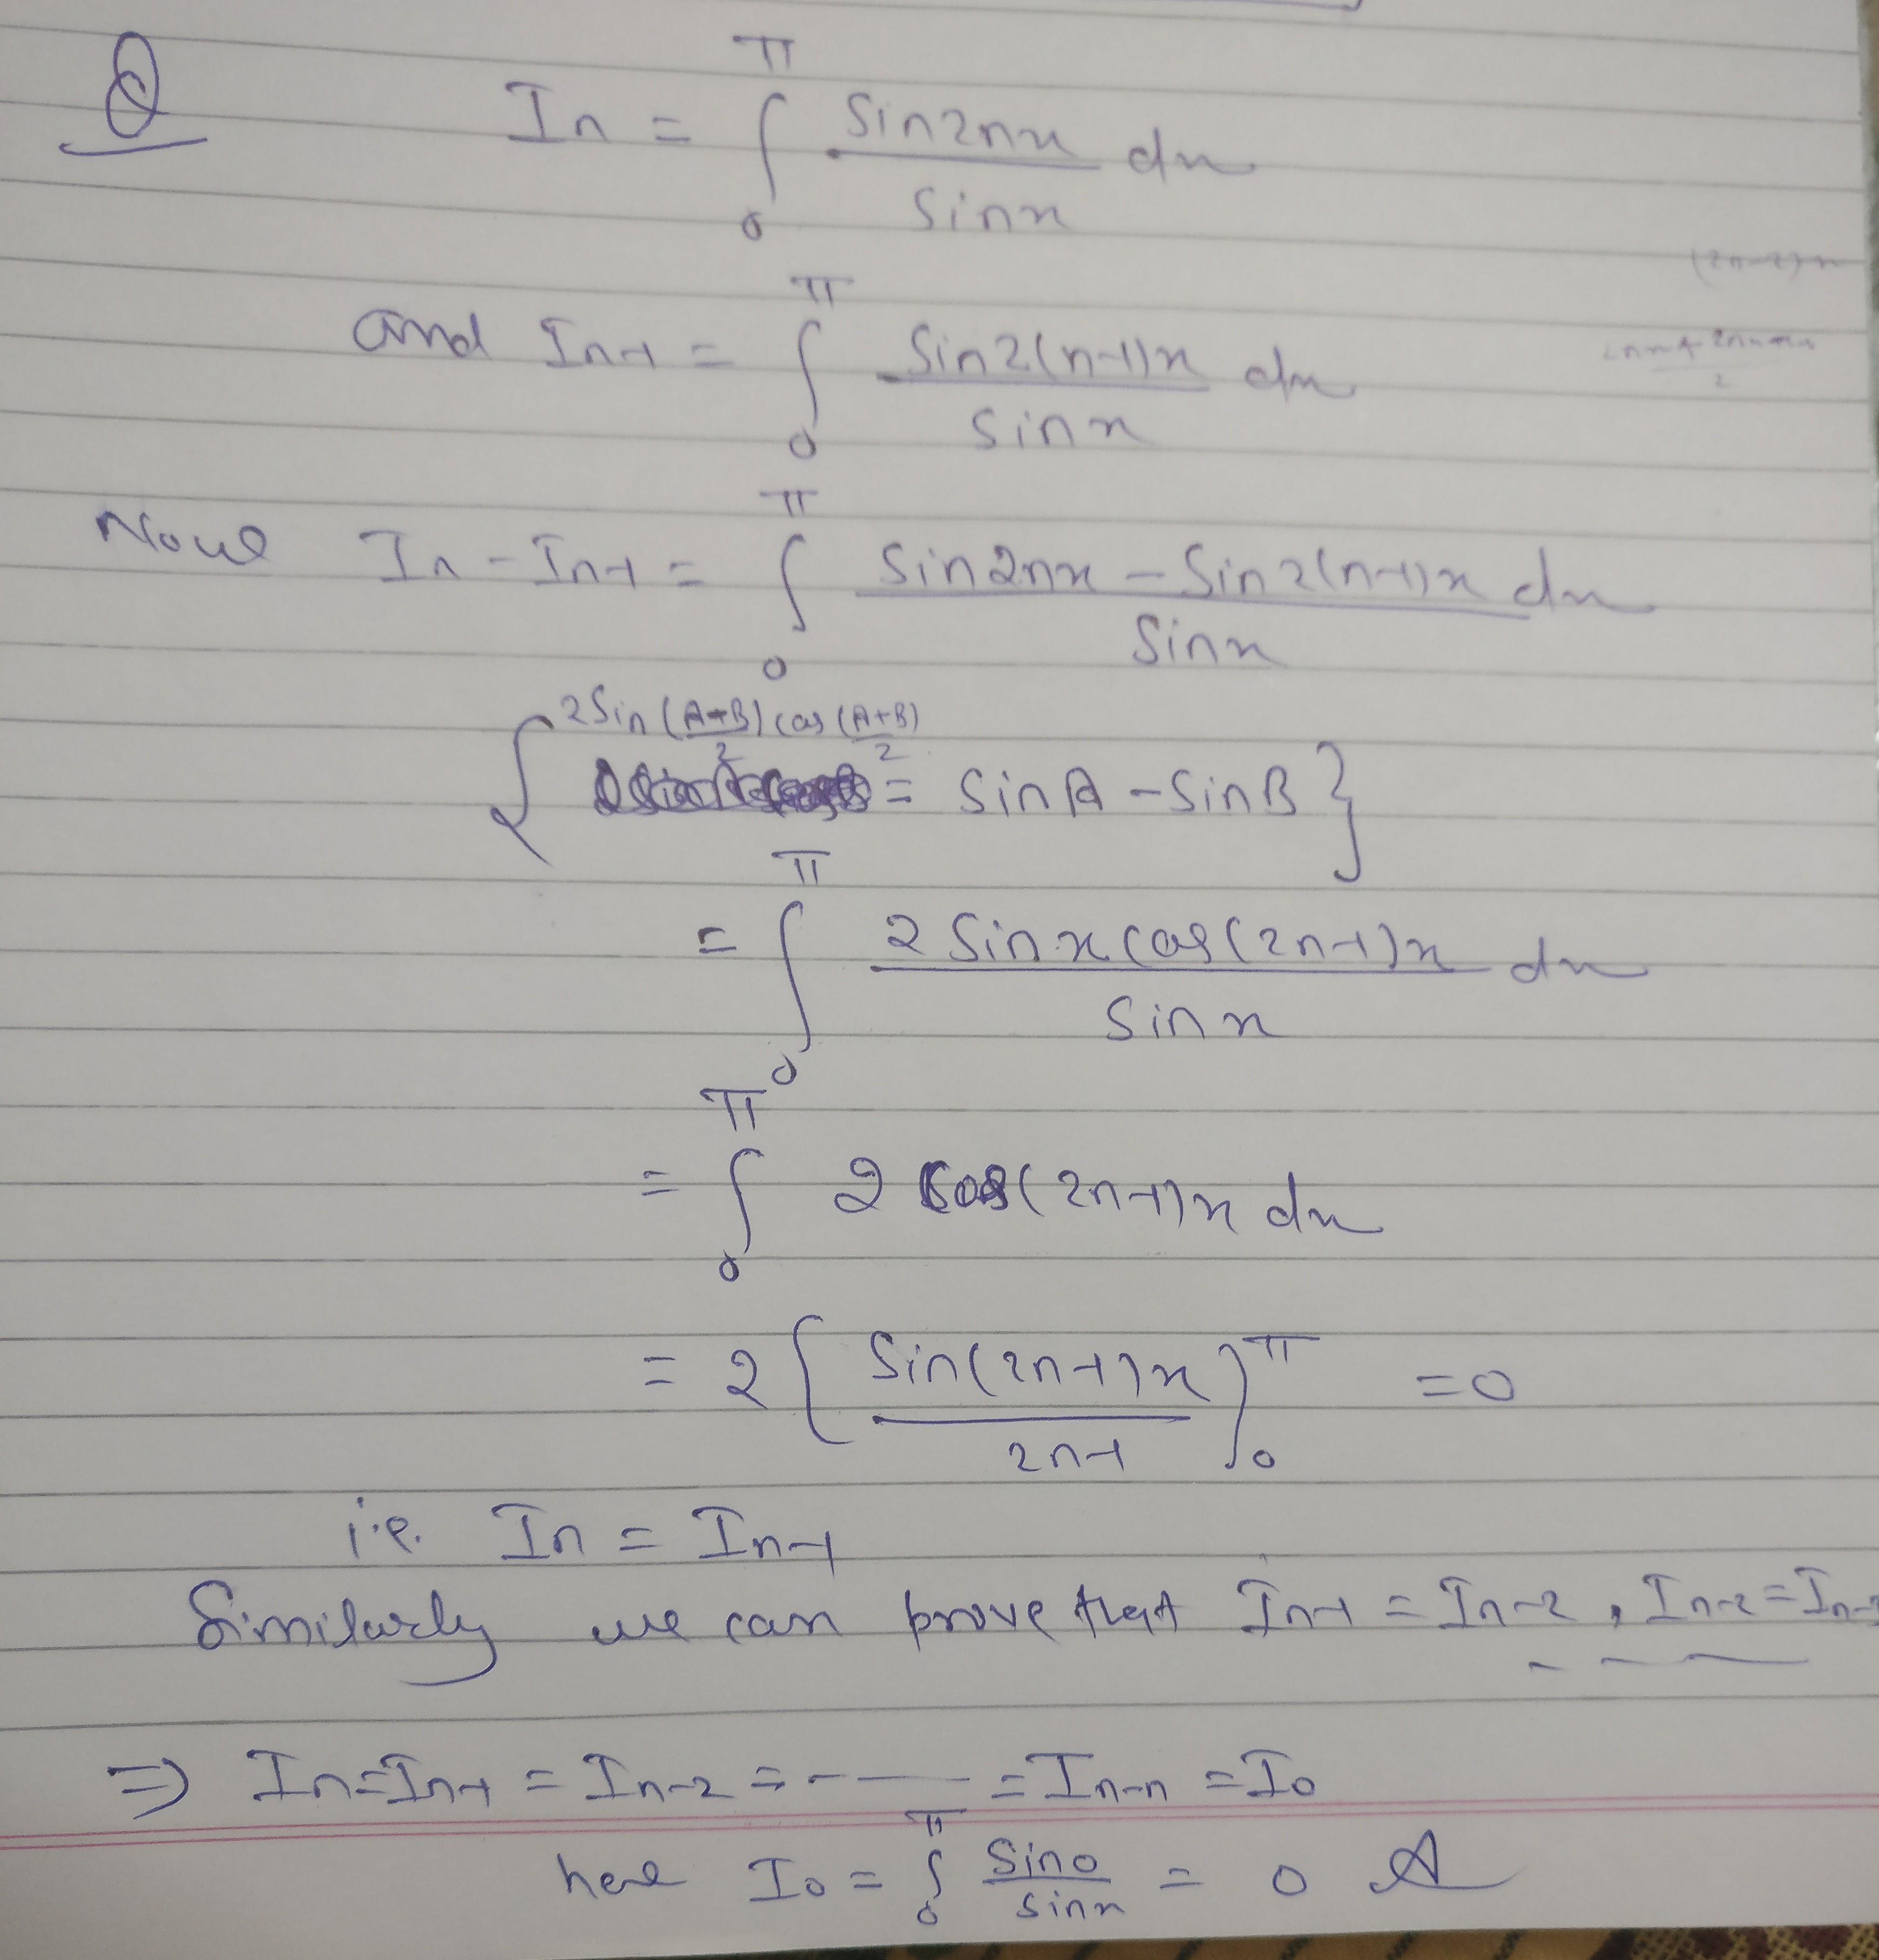 Q In = ∫₀^π sin2nx / sinx dx
(2n-2)x
and In-1 = ∫₀^π sin2(n-1)x / sinx dx
Now In - In-1 = ∫₀^π sin2nx - sin2(n-1)x / sinx dx
{ 2sin (A-B)/2 cos (A+B)/2 = sinA - sinB }
= ∫₀^π 2 sinx cos(2n-1)x / sinx dx
= ∫₀^π 2 cos(2n-1)x dx
= 2 { sin(2n-1)x / 2n-1 }₀^π = 0
i.e. In = In-1
Similarly we can prove that In-1 = In-2 , In-2 = In-3
- - -
⇒ In = In-1 = In-2 = - — = In-n = I0
here I0 = ∫₀^π sin0 / sinx = 0 A